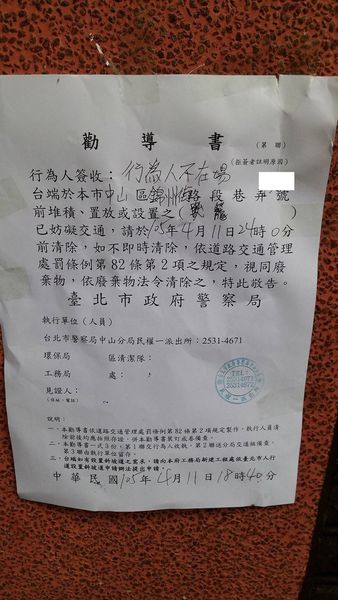 勸導書
(第 聯)
(拒簽者註明原因)
行為人簽收：行為人不在場
台端於本市中山區錦州街路段巷弄號
前堆積、置放或設置之(籠)
已妨礙交通，請於105年4月11日24時0分
前清除，如不即時清除，依道路交通管理
處罰條例第82條第2項之規定，視同廢
棄物，依廢棄物法令清除之，特此敬告。
臺北市政府警察局
執行單位（人員）
台北市警察局中山分局民權一派出所：2531-4671
環保局 區清潔隊：
工務局 處：
見證人：
(住址、電話)
TEL:
25314671
說明：
一、本勸導書依道路交通管理處罰條例第82條第2項規定製作，執行人員清
除前後均應拍照存證，併本勸導書裝訂成卷備查。
二、本勸導書一式3份，第1聯交行為人收執，第2聯送分局交通組備查，
第3聯由執行單位留存。
三、台端如有設置斜坡道之需求，請向本府工務局新建工程處依臺北市人行
道設置斜坡道申請辦法提出申請。
中華民國105年4月11日18時40分